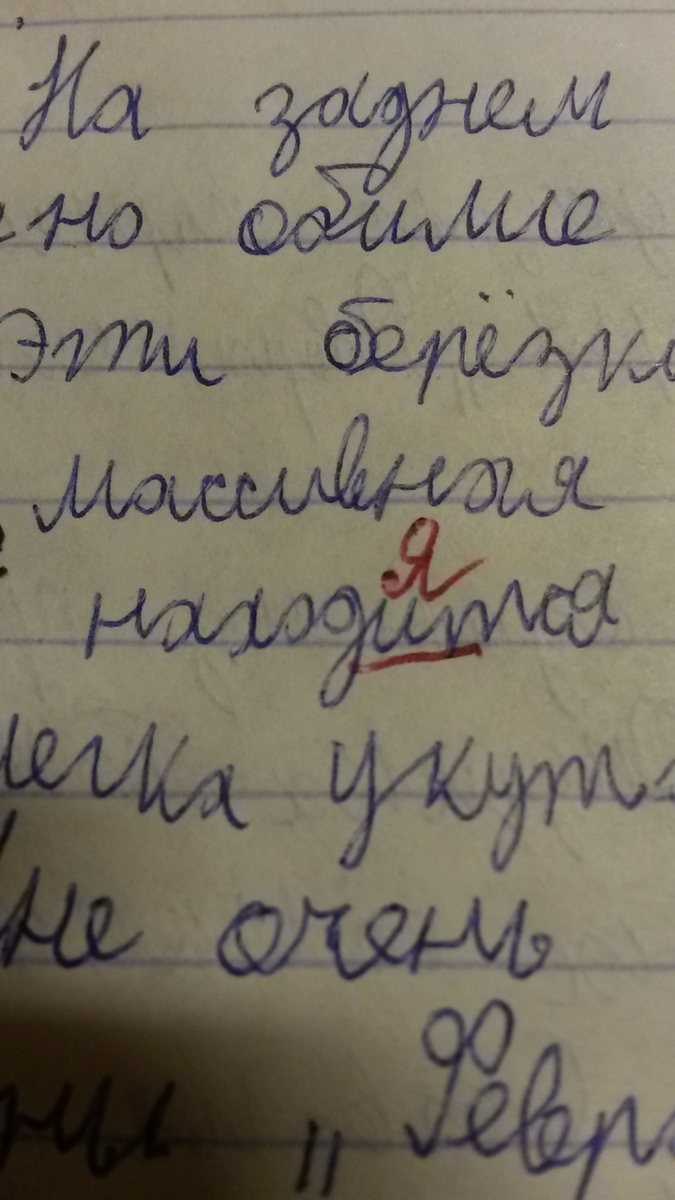 На заднем
но обилие
Эти берёзк
массивная
я
находится
легка укут
не очень
ны „Февр